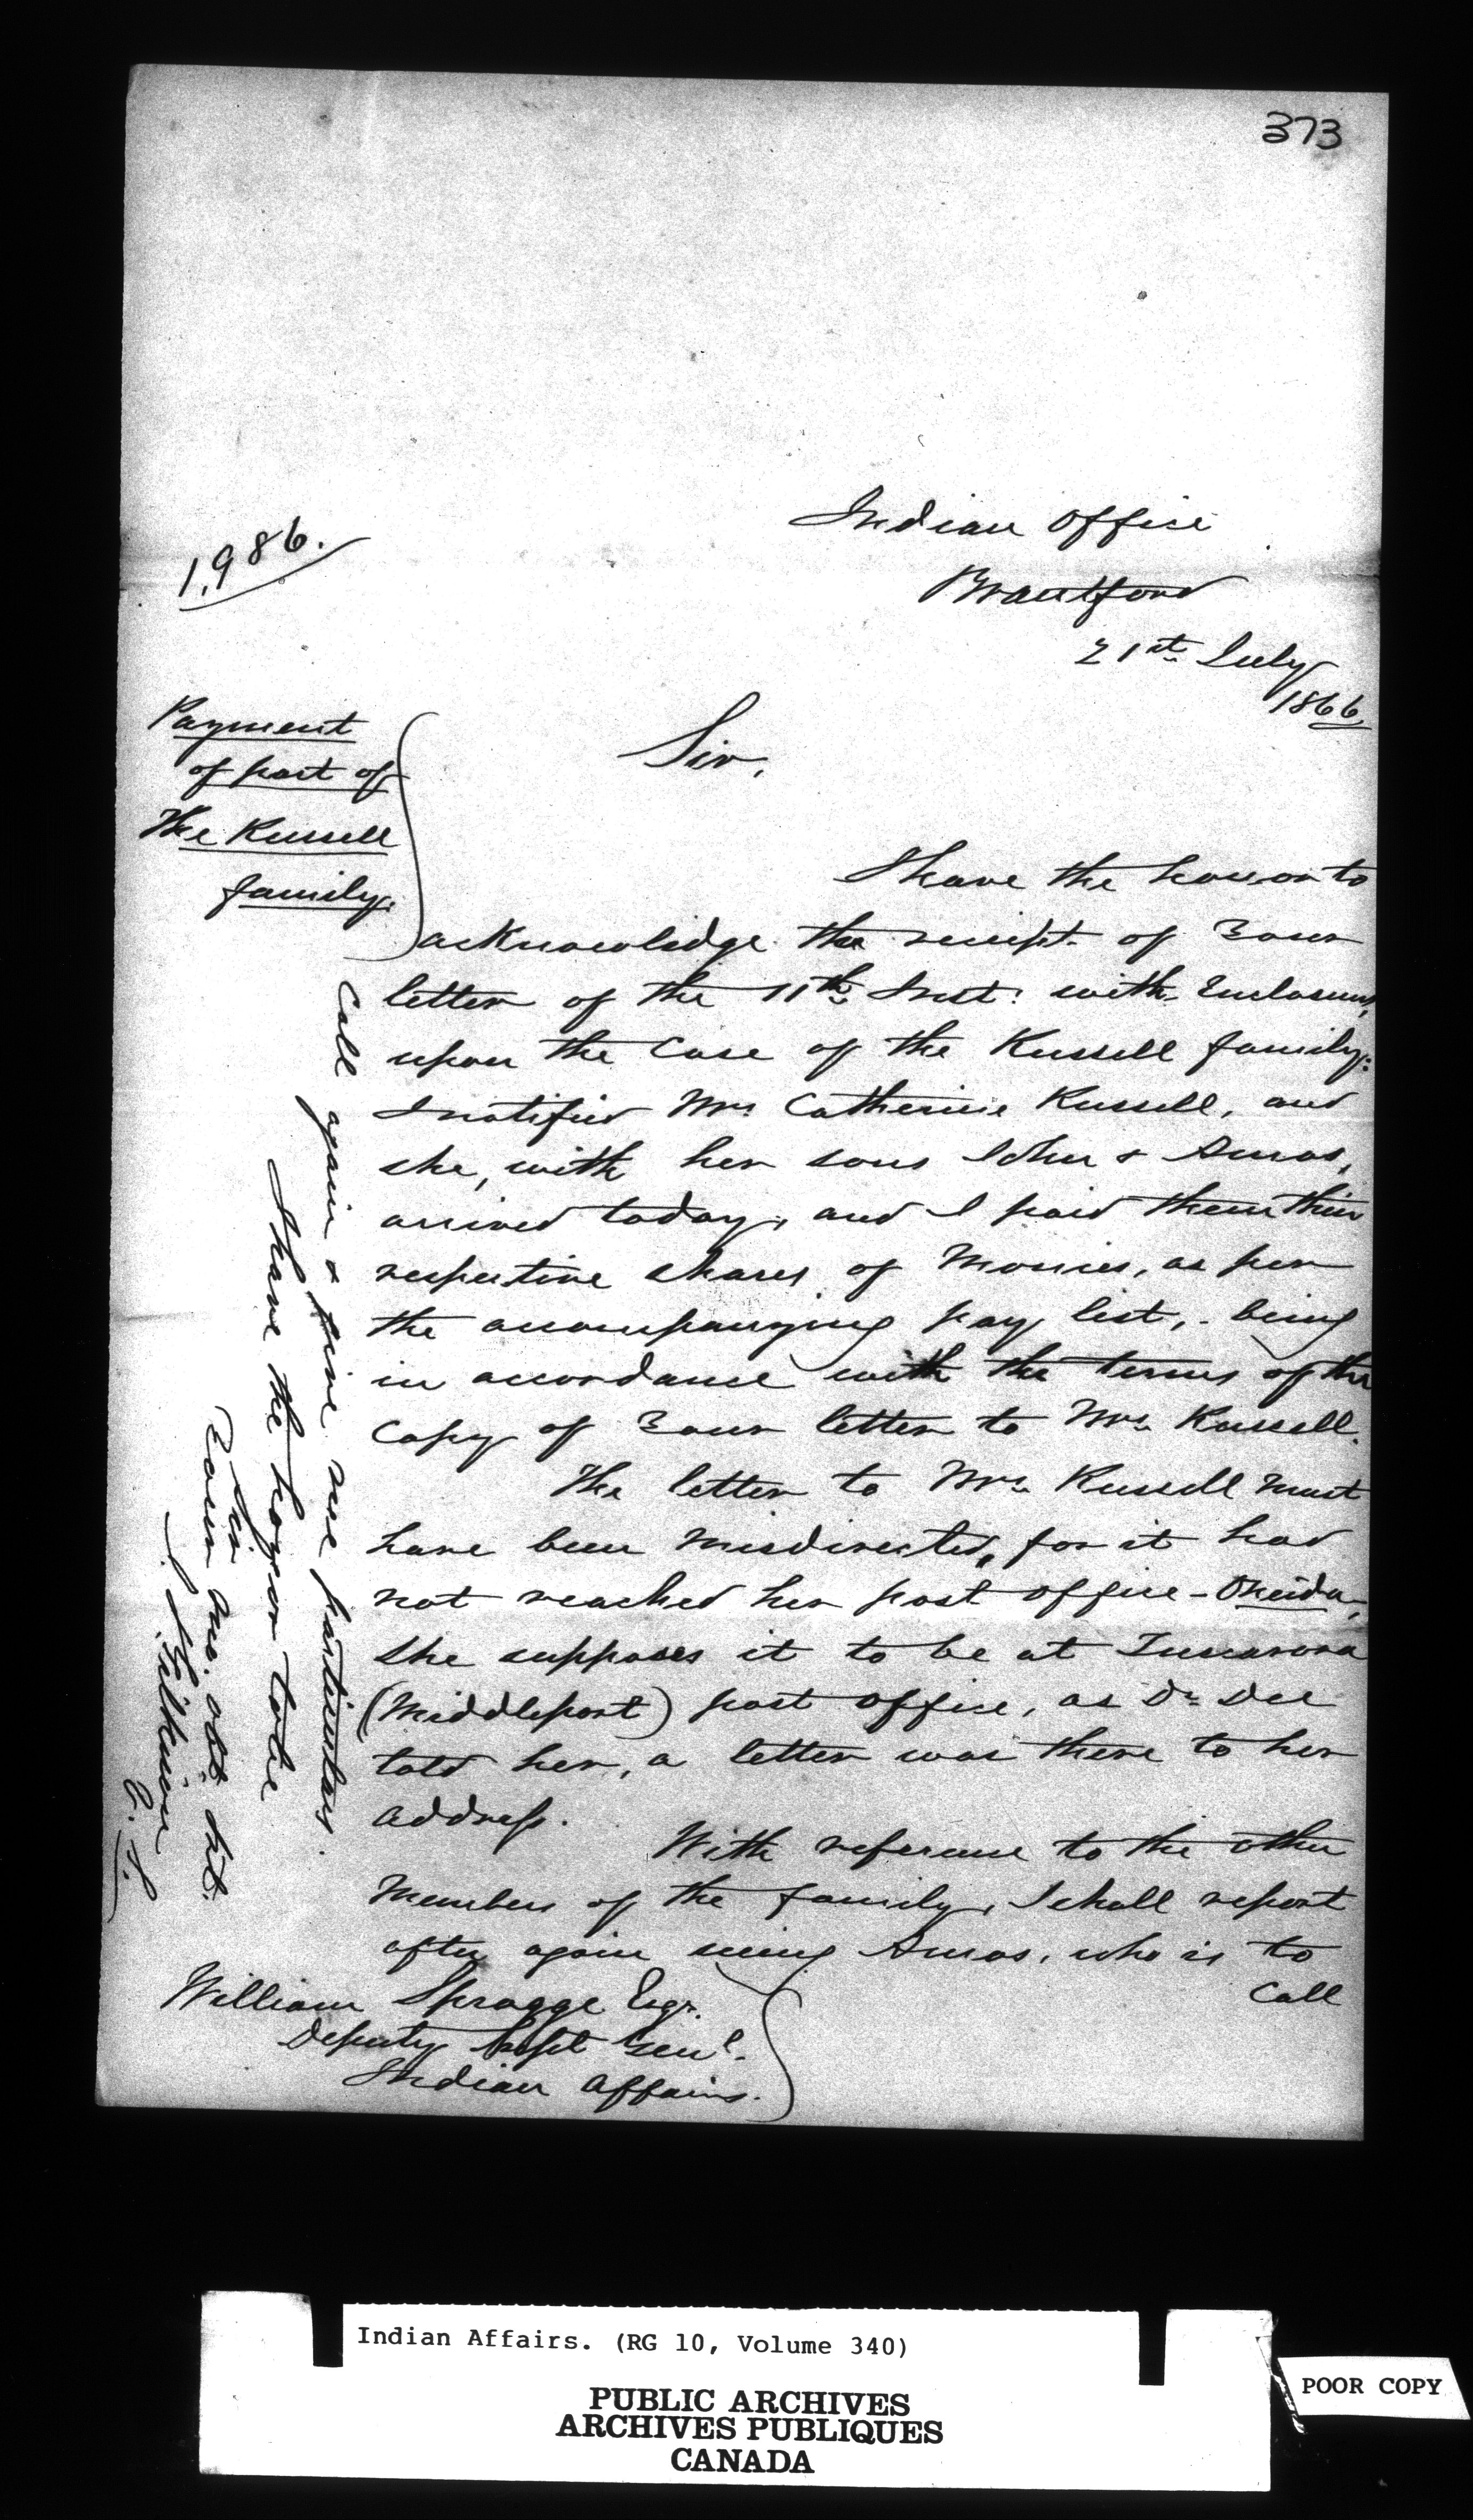 373
Indian Office
Brantford
21st July
1866
1,986.
Payment
of part of
The Russell
family.
Sir,
I have the honor to
acknowledge the receipt of Your
letter of the 11th Inst: with Enclosures,
upon the Case of the Russell family:
I notified Mrs Catherine Russell, and
she, with her sons John & Amos,
arrived today, and I paid them their
respective shares of Monies, as per
the accompanying pay list, - being
in accordance with the terms of the
Copy of Your letter to Mrs Russell.
The letter to Mrs Russell must
have been misdirected, for it had
not reached her post office - Oneida,
She supposes it to be at Tuscarora
(Middleport) post office, as Dr Dee
told her, a letter was there to her
address.
With reference to the other
Members of the family, I shall report
after again seeing Amos, who is to
Call
Call again & give me particulars.
I have the honor to be
Sir
Your mo. obt. st.
J. T. Gilkison
V. S.
William Spragge Esqr.
Deputy Supt Genl.
Indian Affairs.
Indian Affairs. (RG 10, Volume 340)
PUBLIC ARCHIVES
ARCHIVES PUBLIQUES
CANADA
POOR COPY